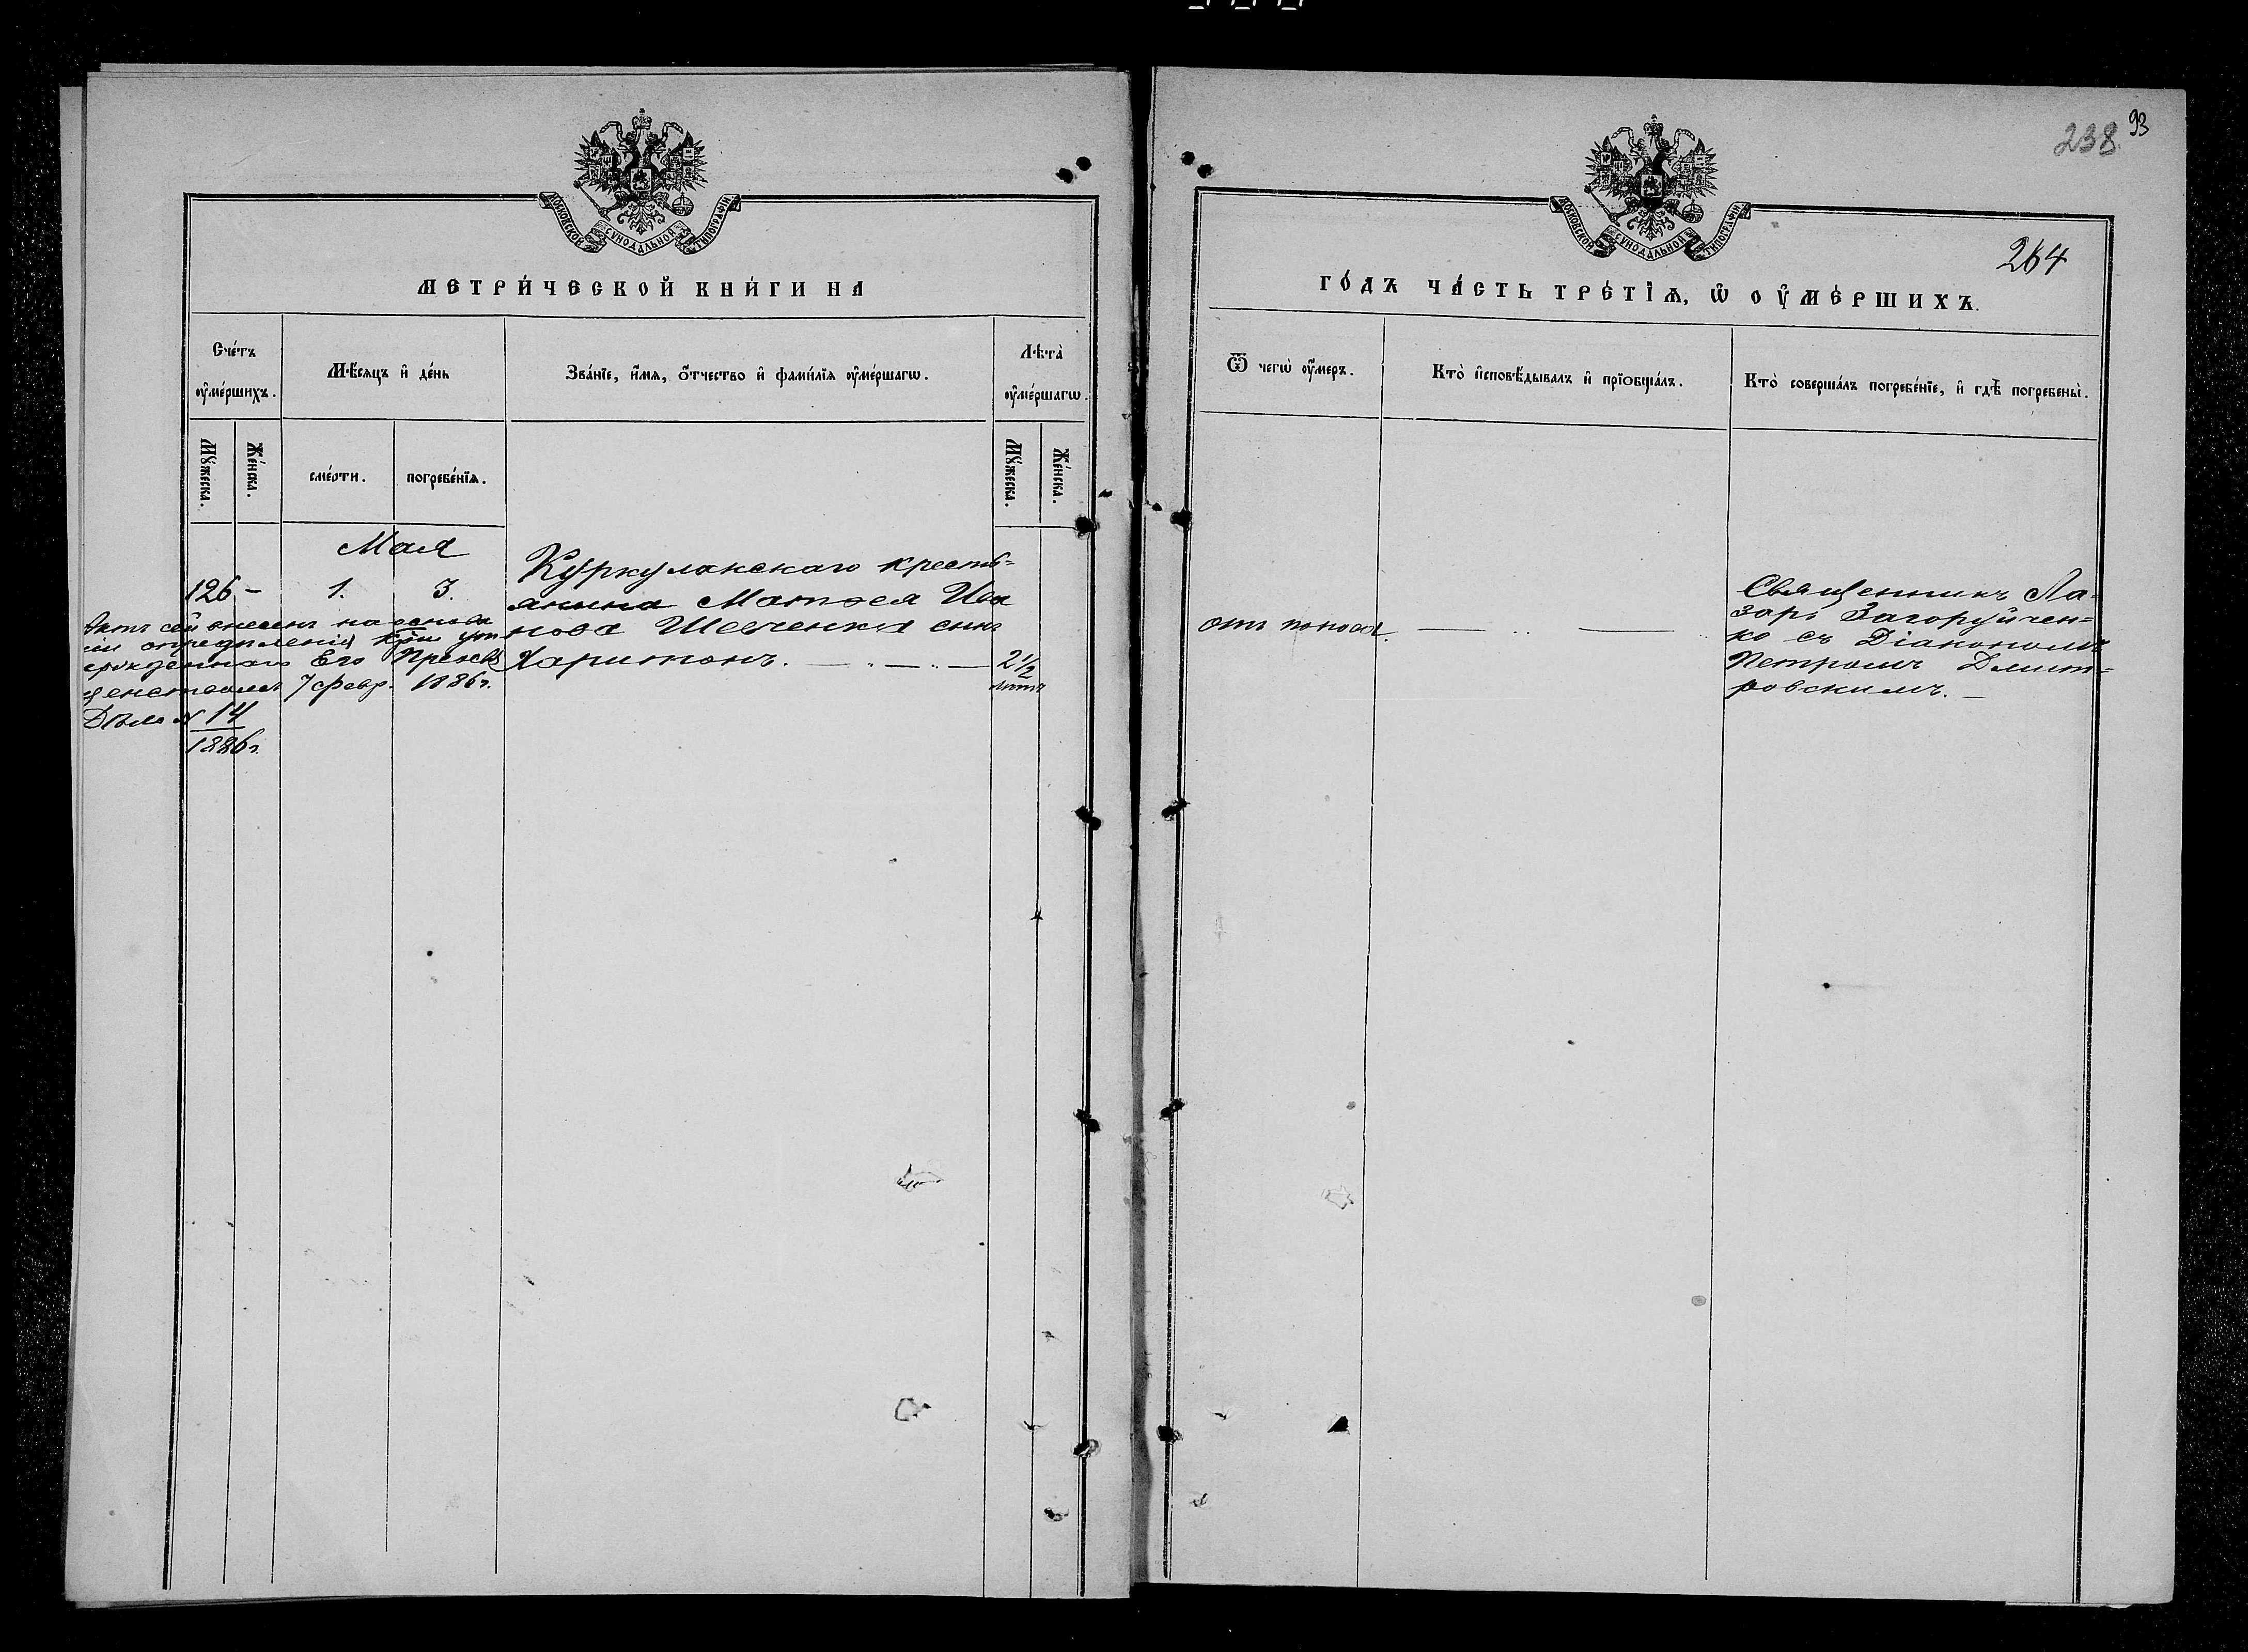 93
238.
МОСКОВСКОЙ СѴНОДАЛЬНОЙ ТИПОГРАФІИ
МЕТРИ́ЧЕСКОЙ КНИ́ГИ НА
Сче́тъ
оу҆ме́ршихъ.
Мѣ́сяцъ и҆ де́нь
Зва́нїе, и҆́мя, ѻ҆́тчество и҆ фамі́лїя оу҆ме́ршагѡ.
Лѣта̀
оу҆ме́ршагѡ.
Мꙋ́жеска.
Же́нска.
сме́рти.
погребе́нїя.
Мꙋ́жеска.
Же́нска.
Мая
126 – 1. 3.
Куркулакскаго кресть=
янина Матѳея Ива
нова Шевченка сынъ
Харитонъ. 2½
лѣтъ
Актъ сей внесенъ на основа
ніи опредѣленія
утвержденнаго Его Преосв
ященствомъ 7 февр. 1886 г.
Дѣло № 14
1886 г.
МОСКОВСКОЙ СѴНОДАЛЬНОЙ ТИПОГРАФІИ
264
ГО́ДЪ ЧА́СТЬ ТРЕ́ТЇѦ, Ѡ҆ ОУ҆МЕ́РШИХЪ.
Ѿ чегѡ̀ оу҆́меръ.
Кто̀ и҆сповѣ́дывалъ и҆ прїѻбща́лъ.
Кто̀ соверша́лъ погребе́нїе, и҆ гдѣ̀ погребены̀.
отъ поноса.
Священникъ Ла=
зарь Загоруйчен=
ко съ Діакономъ
Петромъ Дмит=
ровскимъ. –